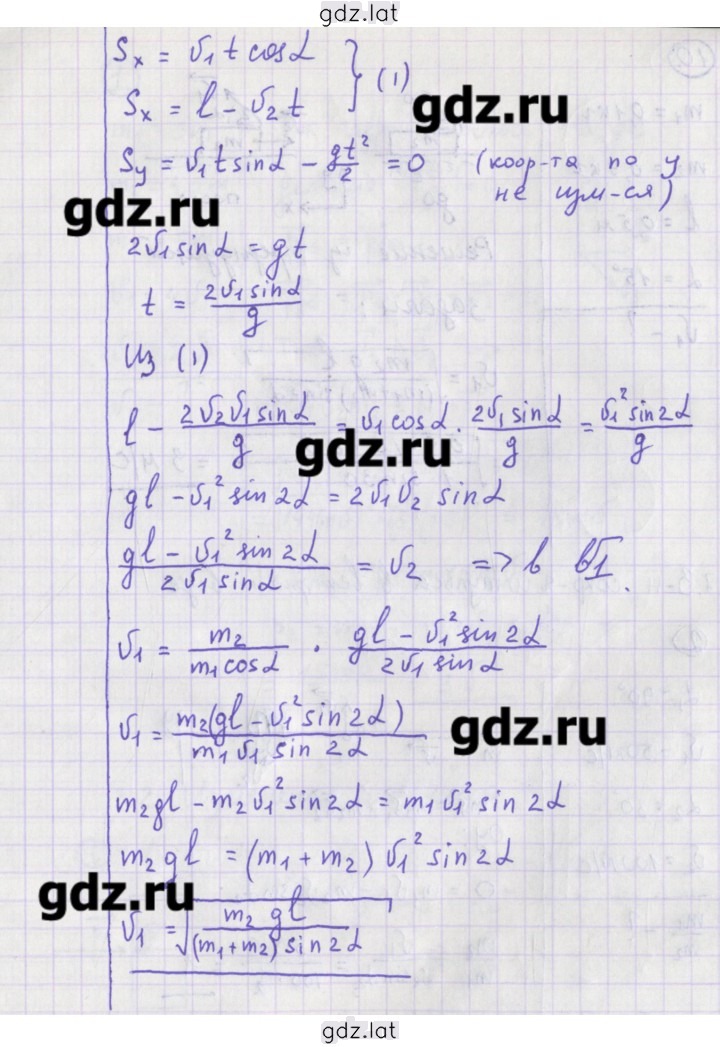 gdz.lat
Sx = υ₁ t cos α
Sx = l − υ₂ t } (1)
gdz.ru
Sy = υ₁ t sin α − gt²/2 = 0 (коор-та по y
не изм-ся)
gdz.ru
2υ₁ sin α = gt
t = 2υ₁ sin α / g
Из (1)
l − 2υ₂υ₁ sin α / g = υ₁ cos α · 2υ₁ sin α / g = υ₁² sin 2α / g
gdz.ru
gl − υ₁² sin 2α = 2υ₁υ₂ sin α
(gl − υ₁² sin 2α) / (2υ₁ sin α) = υ₂ => в υ₁.
υ₁ = m₂ / (m₁ cos α) · (gl − υ₁² sin 2α) / (2υ₁ sin α)
υ₁ = m₂(gl − υ₁² sin 2α) / (m₁ υ₁ sin 2α)
gdz.ru
m₂gl − m₂υ₁² sin 2α = m₁υ₁² sin 2α
m₂gl = (m₁ + m₂) υ₁² sin 2α
gdz.ru
υ₁ = √(m₂ gl / ((m₁+m₂) sin 2α))
gdz.lat